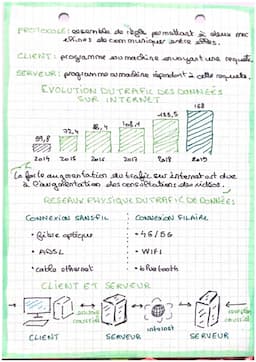 PROTOCOLE: ensemble de règle permettant à deux mac
hines de communiquer entre elles.
CLIENT: programme ou machine envoyant une requête.
SERVEUR: programme ou machine répondant à cette requête.
EVOLUTION DU TRAFIC DES DONNÉES
SUR INTERNET
59,8
72,4
108,1
168
2014 2015 2016 2017 2018 2019
La forte augmentation du trafic sur internet est due
à l'augmentation des consultations des vidéos.
RESEAUX PHYSIQUE DU TRAFIC DE DONNÉES
CONNEXION SANS FIL
CONNEXION FILAIRE
• fibre optique
• 4G/5G
• ADSL
• WIFI
• cable ethernet
• bluetooth
CLIENT ET SERVEUR
internet
CLIENT
SERVEUR
SERVEUR